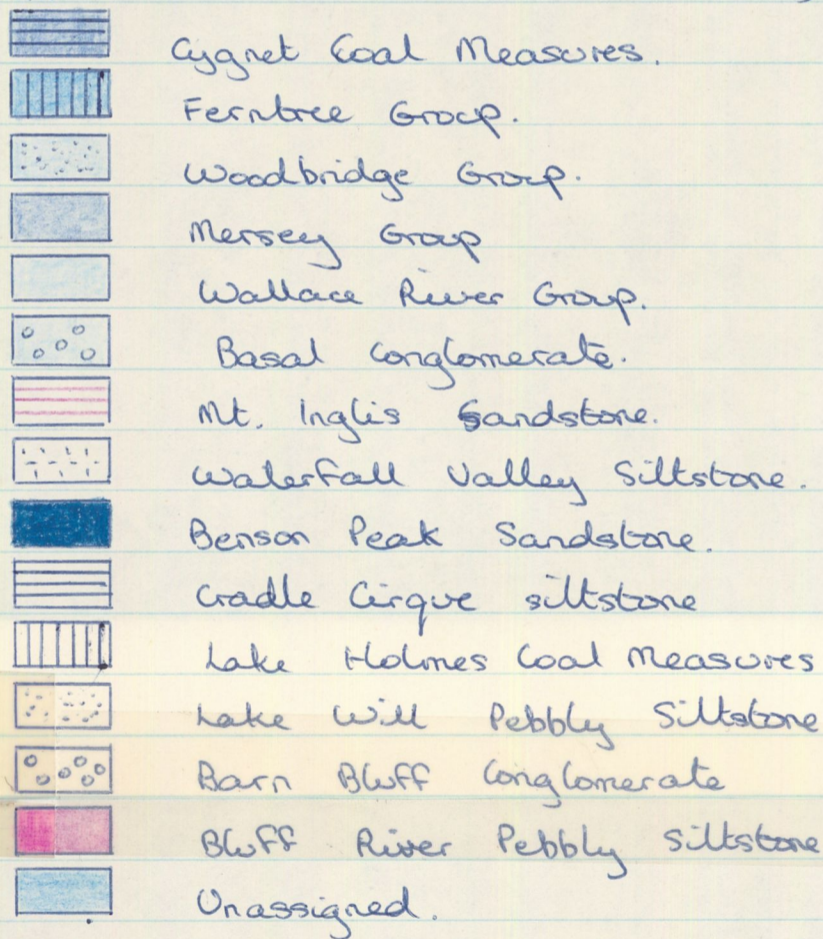 Cygnet Coal Measures.
Ferntree Group.
Woodbridge Group.
Mersey Group
Wallace River Group.
Basal Conglomerate.
Mt. Inglis Sandstone.
Waterfall Valley Siltstone.
Benson Peak Sandstone.
Cradle Cirque siltstone
Lake Holmes Coal Measures
Lake Will Pebbly Siltstone
Barn Bluff Conglomerate
Bluff River Pebbly Siltstone
Unassigned.